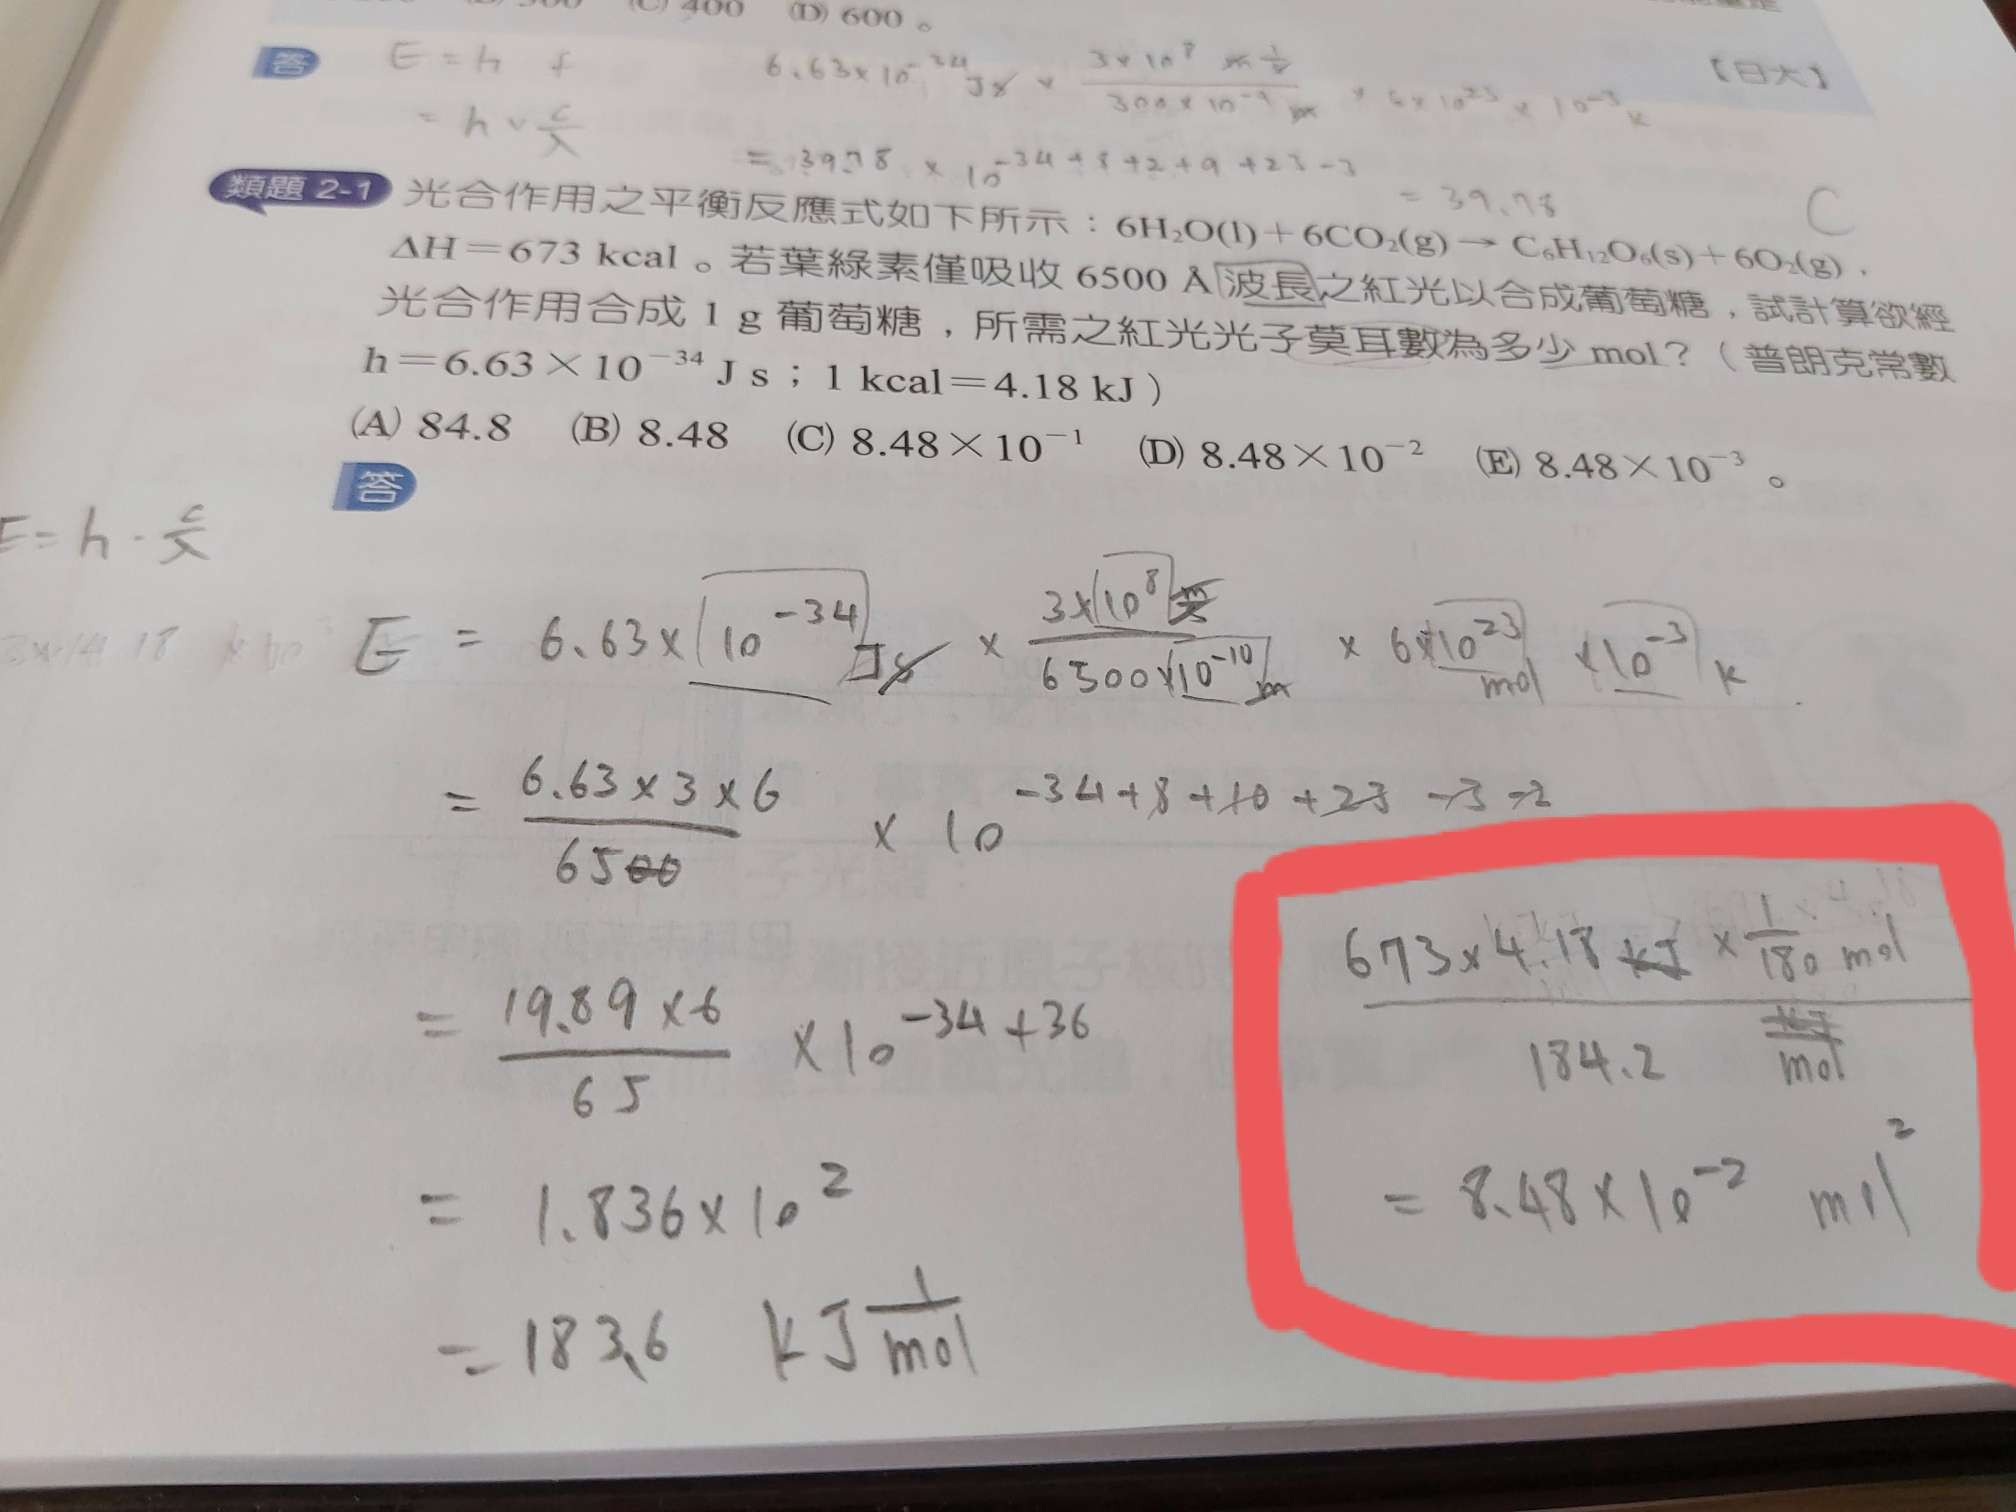 (C) 400 (D) 600。
答 E = h f
= h × c/λ
6.63×10^-34 Js × 3×10^8 m 1/s / 300×10^-9 m × 6×10^23 × 10^-3 k
【日大】
= 39.78 × 10^-34+8+2+9+23-3
= 39.78
C
類題 2-1 光合作用之平衡反應式如下所示:6H₂O(l)+6CO₂(g)→C₆H₁₂O₆(s)+6O₂(g),
ΔH=673 kcal。若葉綠素僅吸收 6500 Å 波長之紅光以合成葡萄糖,試計算欲經
光合作用合成 1 g 葡萄糖,所需之紅光光子莫耳數為多少 mol?(普朗克常數
h=6.63×10⁻³⁴ J s;1 kcal=4.18 kJ)
(A) 84.8 (B) 8.48 (C) 8.48×10⁻¹ (D) 8.48×10⁻² (E) 8.48×10⁻³。
答
E = h · c/λ
E = 6.63×10^-34 Js × 3×10^8 m/s / 6500×10^-10 m × 6×10^23 / mol × 10^-3 k
= 6.63×3×6 / 6500 × 10^-34+8+10+23-3-2
= 19.89×6 / 65 × 10^-34+36
= 1.836×10^2
= 183.6 kJ 1/mol
673×4.18 kJ × 1/180 mol
184.2 kJ/mol
= 8.48×10^-2 mol^2